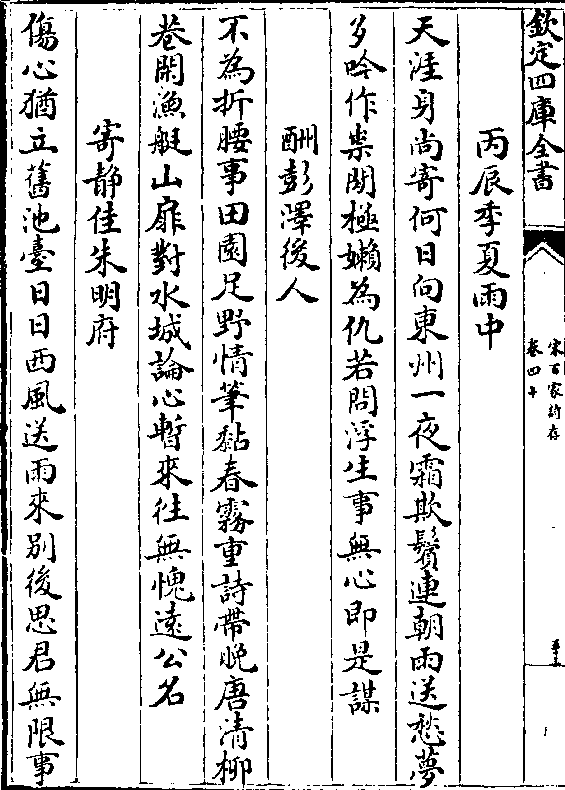 欽定四庫全書
宋百家詩存
卷四十
丙辰季夏雨中
天涯身尚寄何日向東州一夜霜欺鬢連朝雨送愁夢
多吟作祟閒極嬾為仇若問浮生事無心即是謀
酬彭澤後人
不為折腰事田園足野情筆黏春霧重詩帶晚唐清柳
巷閑漁艇山扉對水城論心暫來往無愧遠公名
寄靜佳朱明府
傷心猶立舊池臺日日西風送雨來別後思君無限事